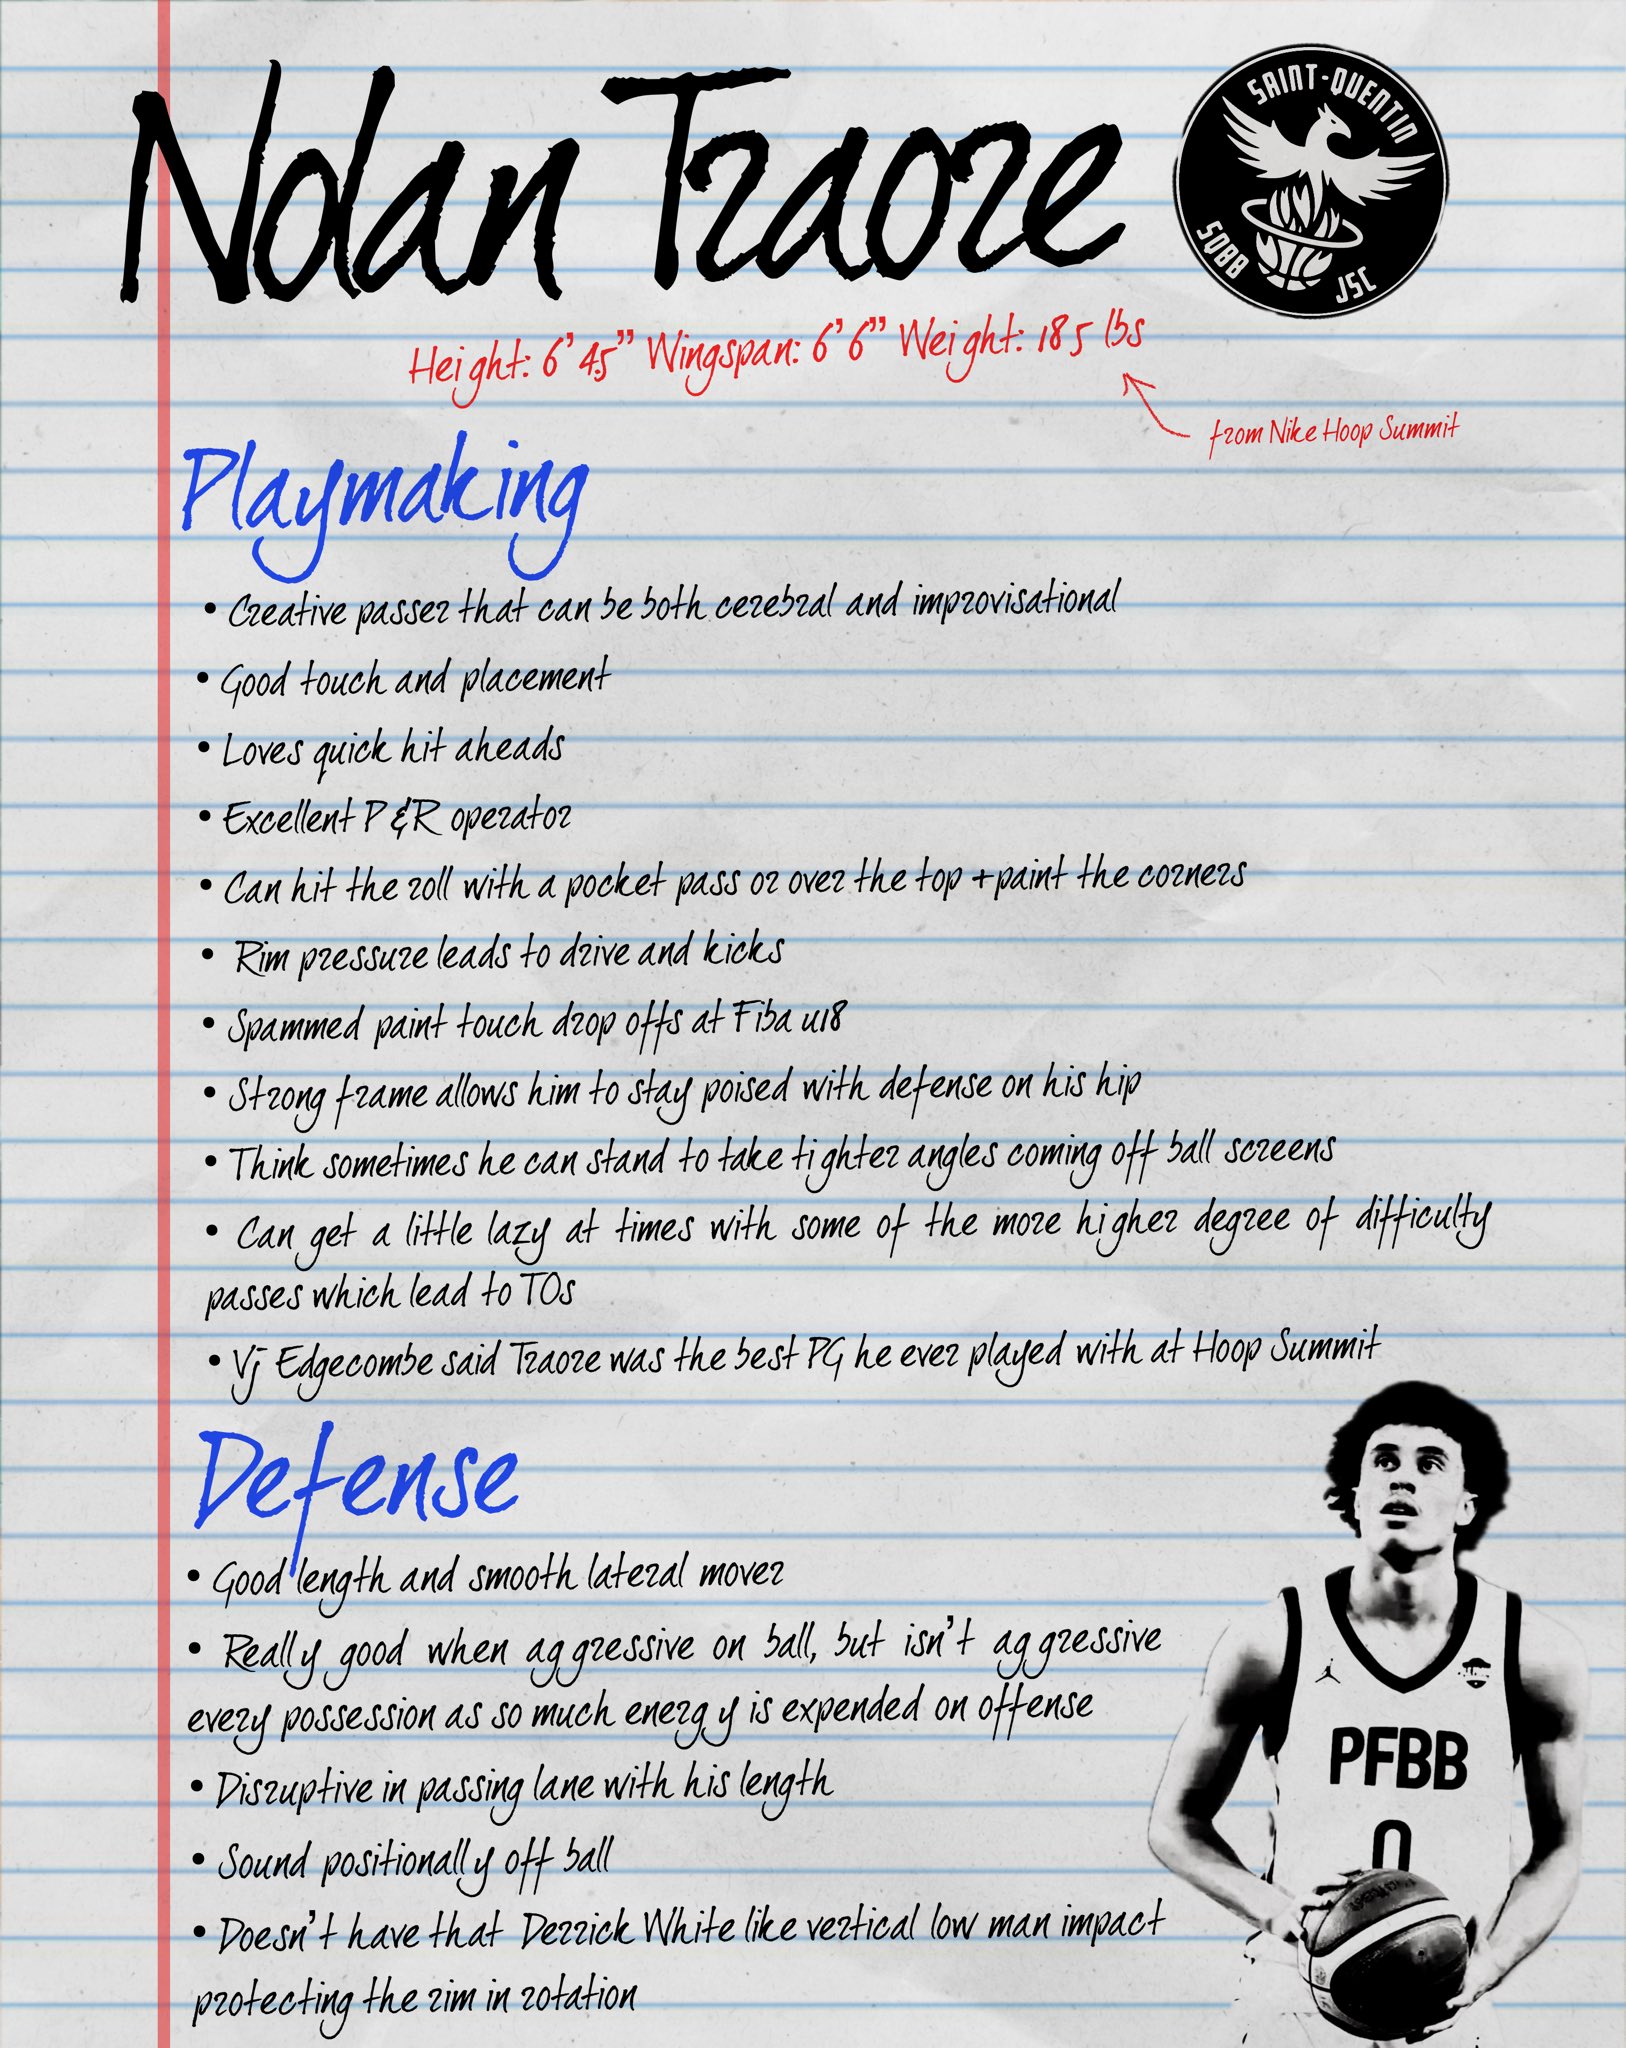 Nolan Traore
SAINT-QUENTIN
SQBB
JSC
Height: 6'4.5" Wingspan: 6'6" Weight: 185 lbs
from Nike Hoop Summit
Playmaking
• Creative passer that can be both cerebral and improvisational
• Good touch and placement
• Loves quick hit aheads
• Excellent P&R operator
• Can hit the roll with a pocket pass or over the top + paint the corners
• Rim pressure leads to drive and kicks
• Spammed paint touch drop offs at Fiba u18
• Strong frame allows him to stay poised with defense on his hip
• Think sometimes he can stand to take tighter angles coming off ball screens
• Can get a little lazy at times with some of the more higher degree of difficulty
passes which lead to TOs
• Vj Edgecombe said Traore was the best PG he ever played with at Hoop Summit
Defense
• Good length and smooth lateral mover
• Really good when aggressive on ball, but isn't aggressive
every possession as so much energy is expended on offense
• Disruptive in passing lane with his length
• Sound positionally off ball
• Doesn't have that Derrick White like vertical low man impact
protecting the rim in rotation
PFBB
0